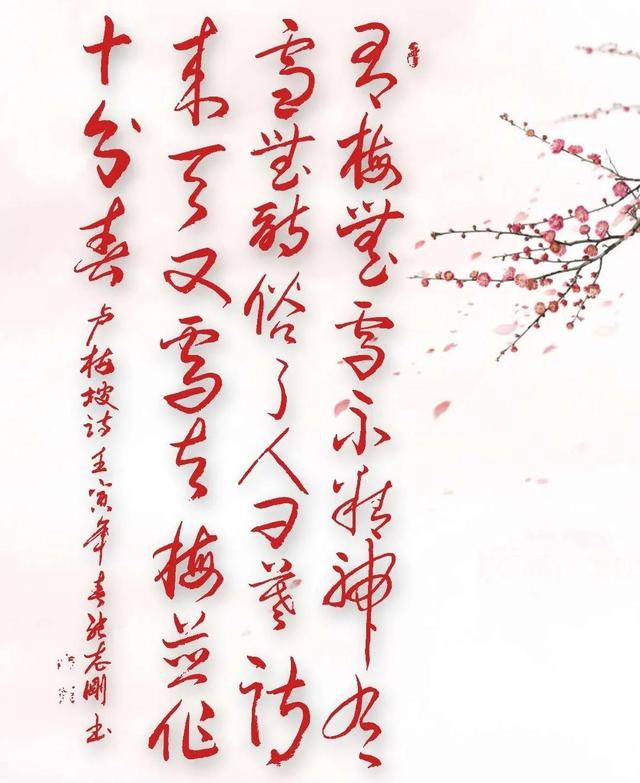 有梅無雪不精神有
雪無詩俗了人日暮诗
来天又雪与梅並作
十分春
卢梅坡诗壬寅年春张志剛书